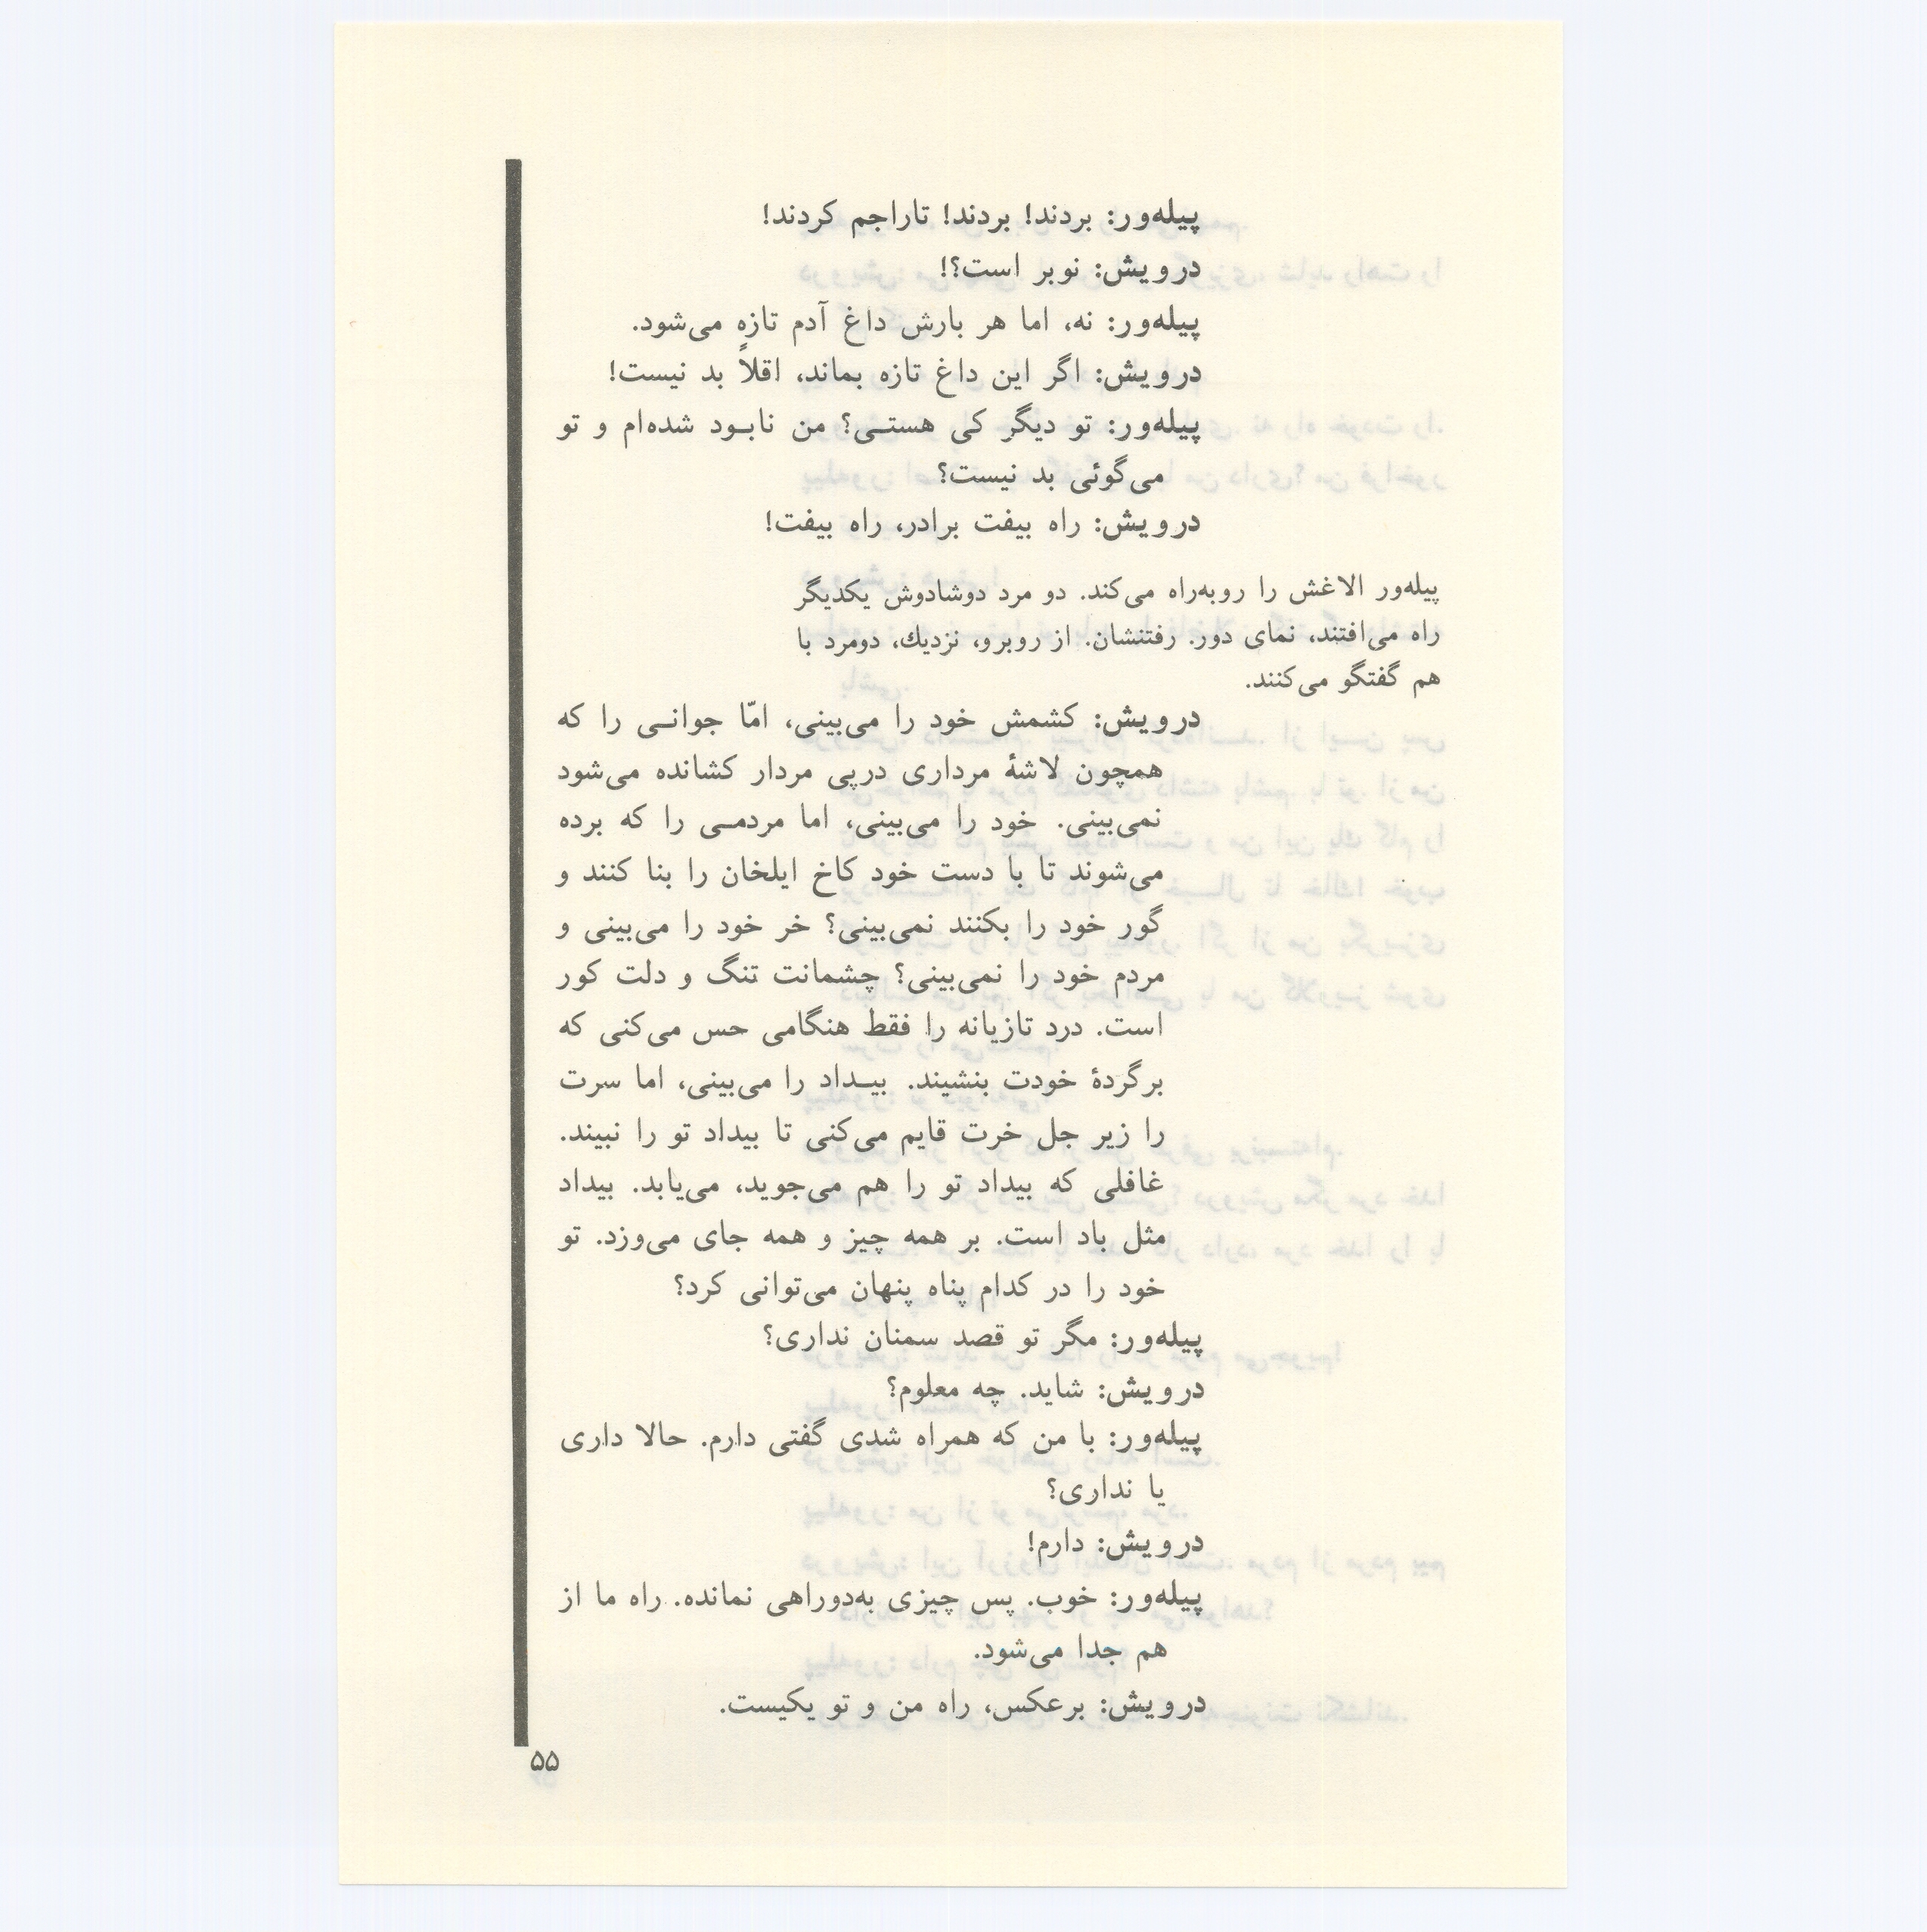 پیله‌ور: بردند! بردند! تاراجم کردند!
درویش: نوبر است؟!
پیله‌ور: نه، اما هر بارش داغ آدم تازه می‌شود.
درویش: اگر این داغ تازه بماند، اقلاً بد نیست!
پیله‌ور: تو دیگر کی هستـی؟ من نابـود شده‌ام و تو
می‌گوئی بد نیست؟
درویش: راه بیفت برادر، راه بیفت!
پیله‌ور الاغش را روبه‌راه می‌کند. دو مرد دوشادوش یکدیگر
راه می‌افتند، نمای دور. رفتنشان. از روبرو، نزدیك، دومرد با
هم گفتگو می‌کنند.
درویش: کشمش خود را می‌بینی، امّا جوانـی را که
همچون لاشهٔ مرداری درپی مردار کشانده می‌شود
نمی‌بینی. خود را می‌بینی، اما مردمـی را که برده
می‌شوند تا با دست خود کاخ ایلخان را بنا کنند و
گور خود را بکنند نمی‌بینی؟ خر خود را می‌بینی و
مردم خود را نمی‌بینی؟ چشمانت تنگ و دلت کور
است. درد تازیانه را فقط هنگامی حس می‌کنی که
برگردهٔ خودت بنشیند. بیـداد را می‌بینی، اما سرت
را زیر جل خرت قایم می‌کنی تا بیداد تو را نبیند.
غافلی که بیداد تو را هم می‌جوید، می‌یابد. بیداد
مثل باد است. بر همه چیز و همه جای می‌وزد. تو
خود را در کدام پناه پنهان می‌توانی کرد؟
پیله‌ور: مگر تو قصد سمنان نداری؟
درویش: شاید. چه معلوم؟
پیله‌ور: با من که همراه شدی گفتی دارم. حالا داری
یا نداری؟
درویش: دارم!
پیله‌ور: خوب. پس چیزی به‌دوراهی نمانده. راه ما از
هم جدا می‌شود.
درویش: برعکس، راه من و تو یکیست.
۵۵